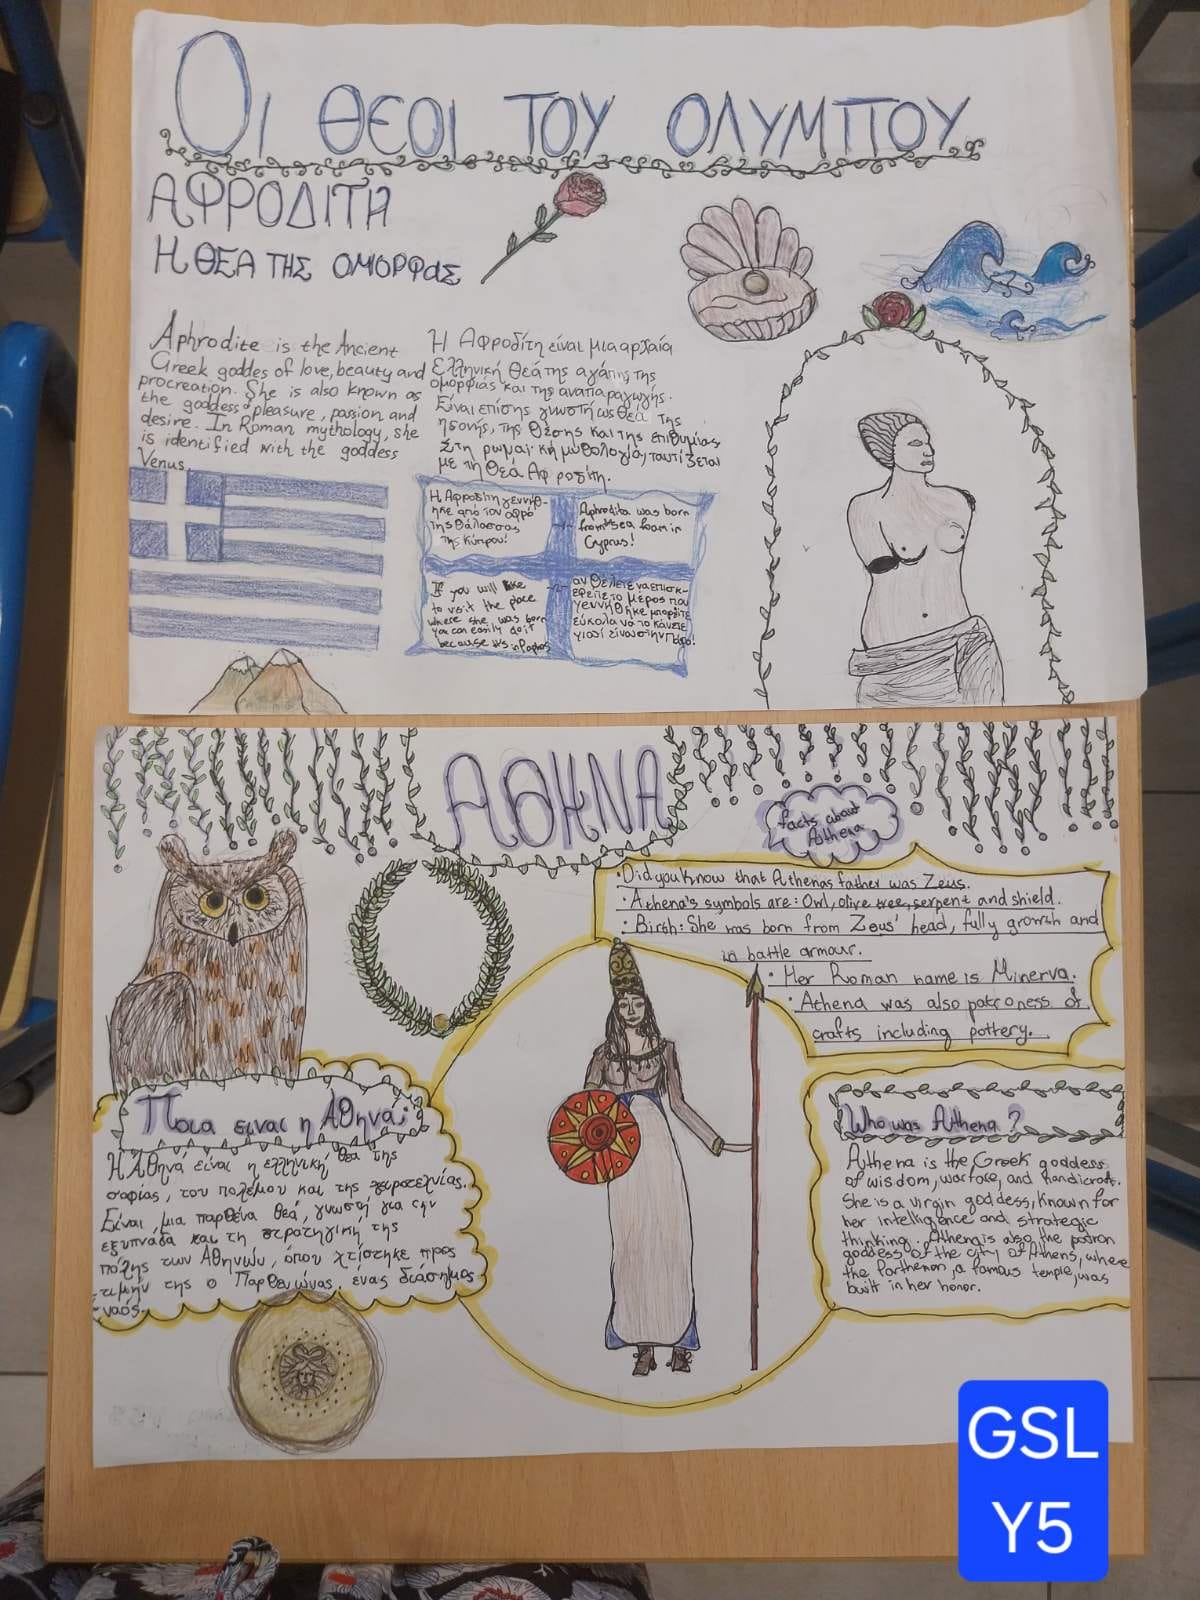 Οι ΘΕΟΙ ΤΟΥ ΟΛΥΜΠΟΥ
ΑΦΡΟΔΙΤΗ
Η ΘΕΑ ΤΗΣ ΟΜΟΡΦαΣ
Aphrodite is the Ancient
Greek goddes of love, beauty and
procreation. She is also known as
the goddess of pleasure, passion and
desire. In Roman mythology, she
is identified with the goddess
Venus.
Η Αφροδίτη είναι μια αρχαία
Ελληνική Θεά της αγάπης, της
ομορφιάς και της αναπαραγωγής.
Είναι επίσης γνωστή ως Θεά της
ηδονής, της Θέσης και της επιθυμίας
Στη ρωμαϊκή μυθολογία, ταυτίζεται
με τη Θεά Αφροδίτη.
Η Αφροδίτη γεννήθ-
ηκε από τον αφρό
της Θάλασσας
της Κύπρου!
Aphrodita was born
from the sea foam in
Cyprus!
If you will like
to visit the place
where she was born
you can easily do it
because it's in Paphos
αν Θέλετε να επισκ-
εφτείτε το μέρος που
γεννήθηκε μπορείτε
εύκολα να το κάνετε
γιατί είναι στην Πάφο!
ΑΘΗΝΑ
facts about
Athena
·Did you know that Athenas father was Zeus.
·Athena's symbols are: Owl, olive tree, serpent and shield.
·Birth: She was born from Zeus' head, fully growth and
in battle armour.
·Her Roman name is Minerva.
·Athena was also patroness of
crafts including pottery.
Ποια ειναι η Αθηνά;
Η Αθηνά είναι η ελληνική θεά της
σοφίας, του πολέμου και της χειροτεχνίας.
Είναι μια παρθένα θεά, γνωστή για την
εξυπνάδα και τη στρατηγική της
πόλης των Αθηνών, όπου χτίστηκε προς
τιμήν της ο Παρθενώνας, ένας διάσημος
ναός.
Who was Athena?
Athena is the Greek goddess
of wisdom, warface, and handicraft.
She is a virgin goddess, known for
her intelligence and strategic
thinking. Athena is also the patron
goddess of the city of Athens, where
the Parthenon, a famous temple, was
built in her honor.
GSL
Y5